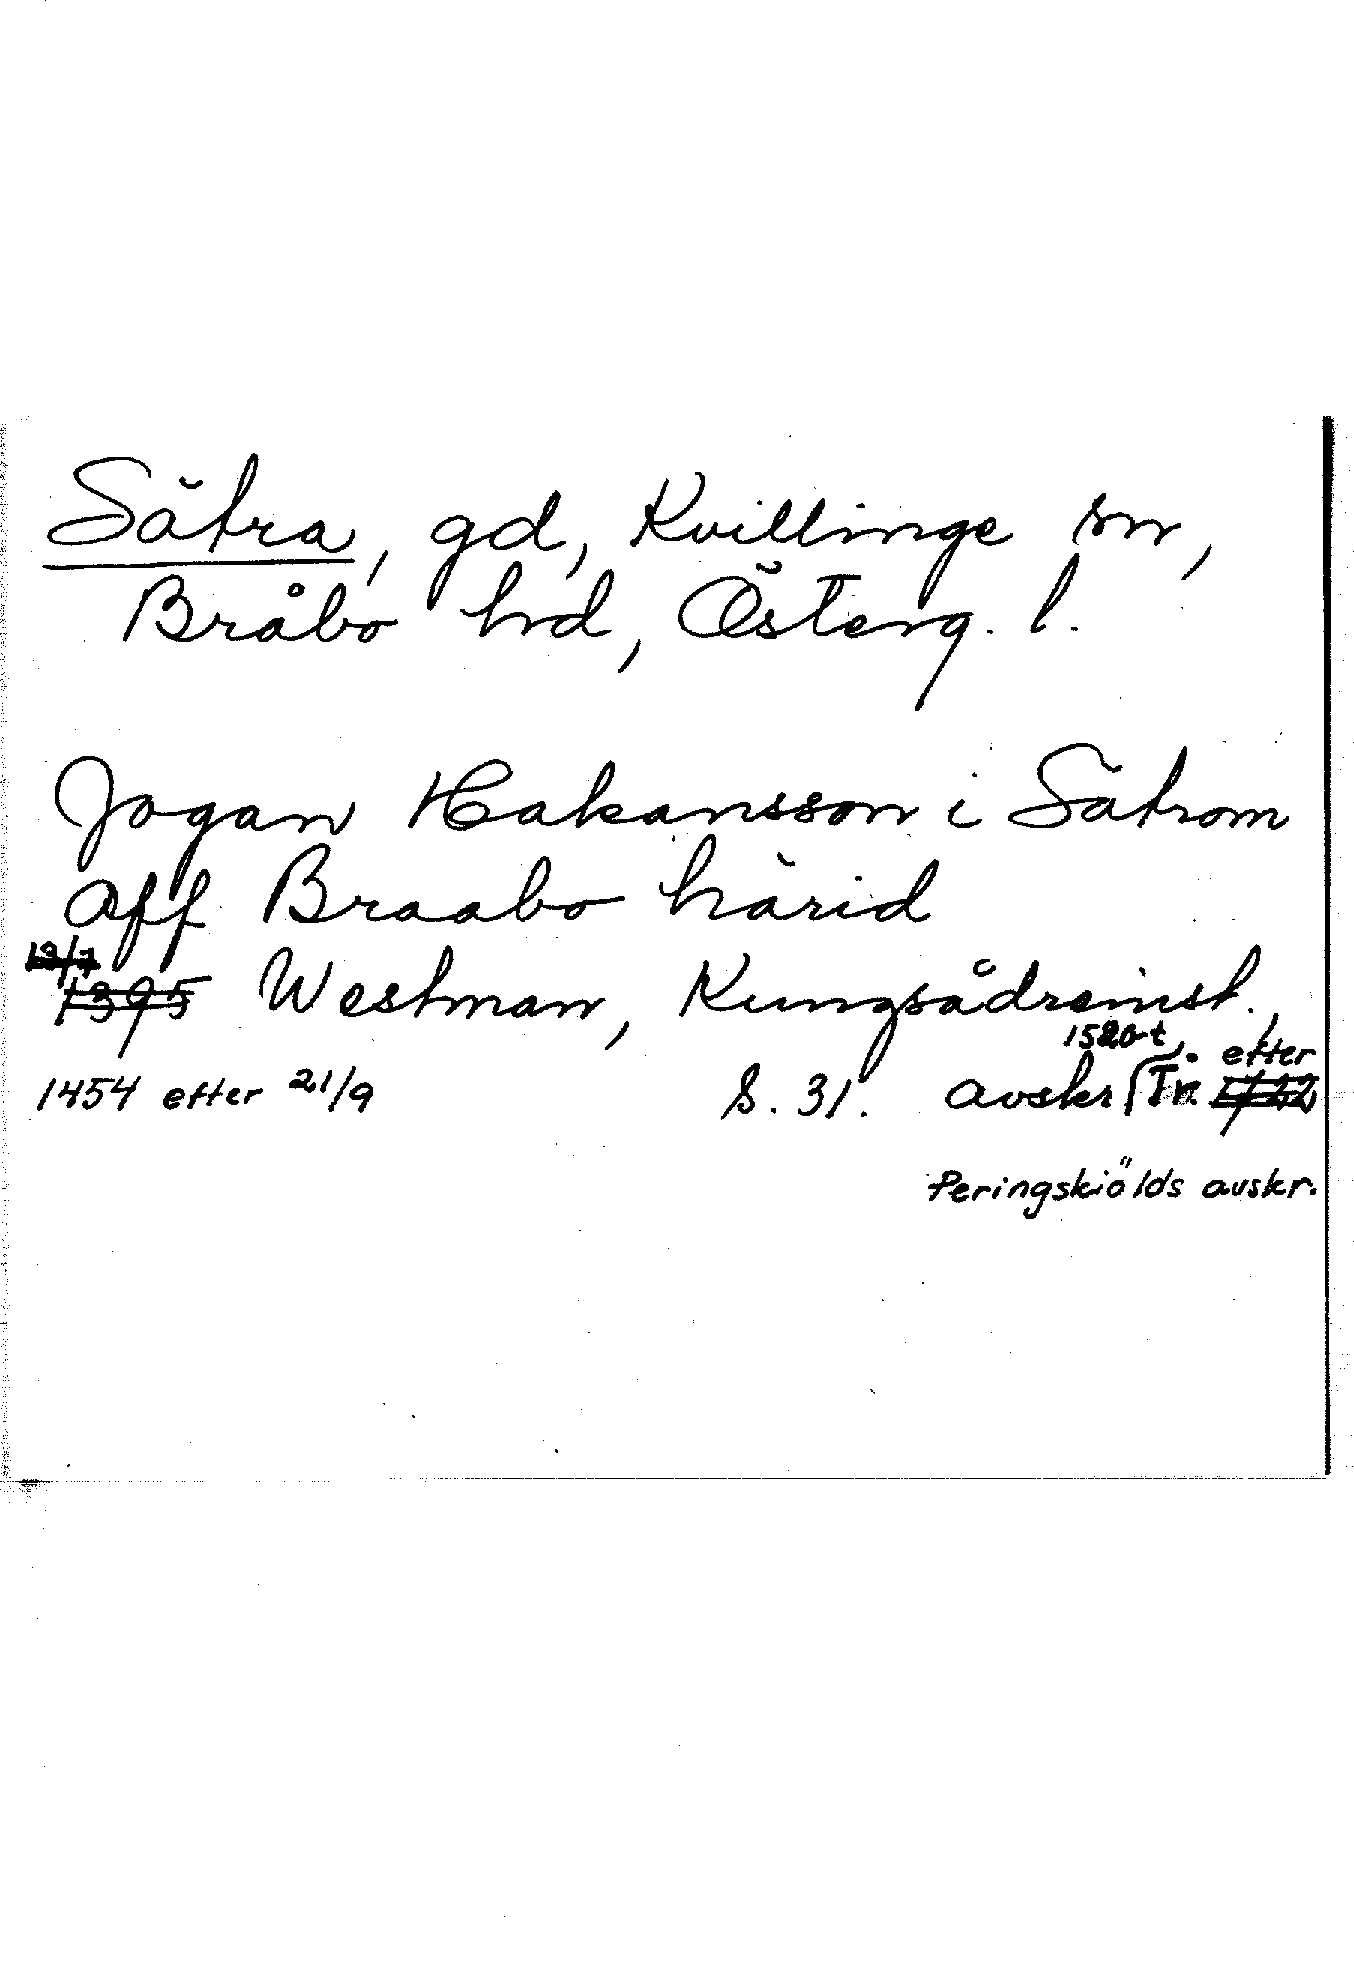 Sätra, gd, Kvillinge sn,
Bråbo hd, Österg. l.
Jogan Hakansson i Sätrom
aff Braabo härid
13/7
1395 Westman, Kungsådreinst.,
1520-t. efter
1454 efter 21/9 S. 31. avskr Tr. 1722
Peringskiölds avskr.